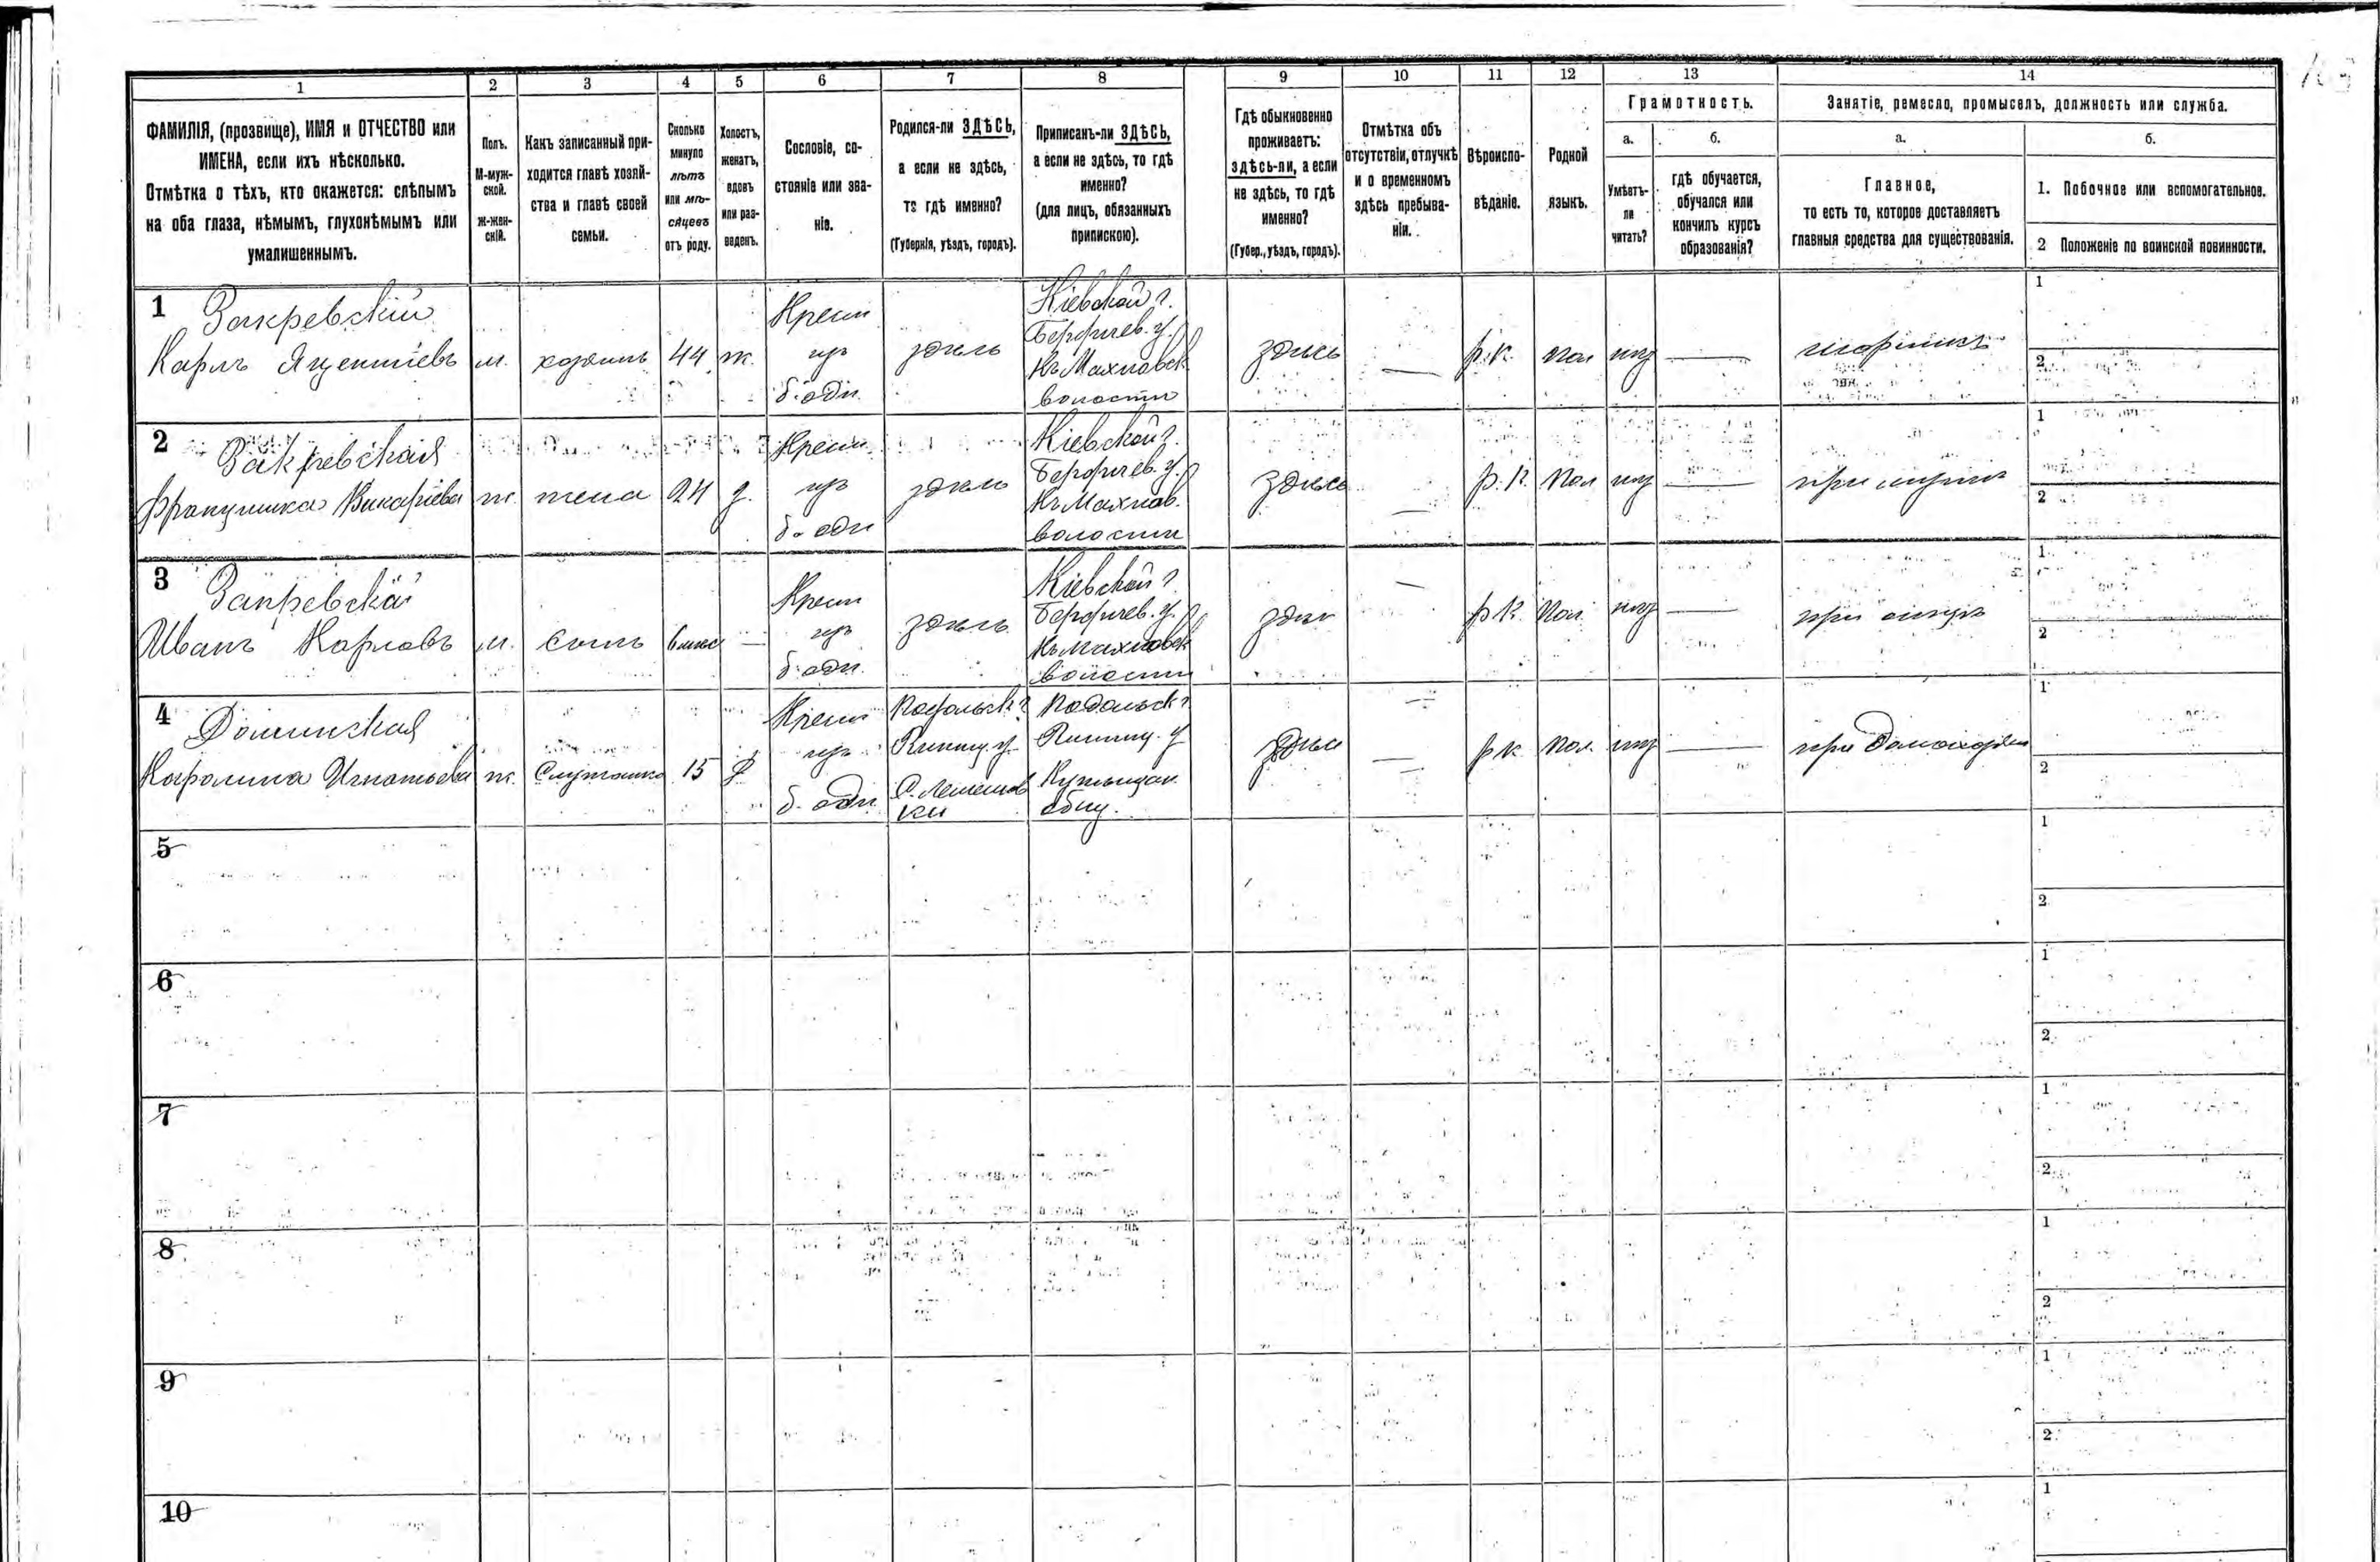 1 2 3 4 5 6 7 8 9 10 11 12 13 14
ФАМИЛІЯ, (прозвище), ИМЯ и ОТЧЕСТВО или
ИМЕНА, если ихъ нѣсколько.
Отмѣтка о тѣхъ, кто окажется: слѣпымъ
на оба глаза, нѣмымъ, глухонѣмымъ или
умалишеннымъ.
Полъ.
М-муж-
ской.
Ж-жен-
скій.
Какъ записанный при-
ходится главѣ хозяй-
ства и главѣ своей
семьи.
Сколько
минуло
лѣтъ
или мѣ-
сяцевъ
отъ роду.
Холостъ,
женатъ,
вдовъ
или раз-
веденъ.
Сословіе, со-
стояніе или зва-
ніе.
Родился-ли ЗДѢСЬ,
а если не здѣсь,
то гдѣ именно?
(Губернія, уѣздъ, городъ).
Приписанъ-ли ЗДѢСЬ,
а если не здѣсь, то гдѣ
именно?
(для лицъ, обязанныхъ
припискою).
Гдѣ обыкновенно
проживаетъ:
здѣсь-ли, а если
не здѣсь, то гдѣ
именно?
(Губер., уѣздъ, городъ).
Отмѣтка объ
отсутствіи, отлучкѣ
и о временномъ
здѣсь пребыва-
ніи.
Вѣроиспо-
вѣданіе.
Родной
языкъ.
Грамотность.
а.
Умѣетъ-
ли
читать?
б.
гдѣ обучается,
обучался или
кончилъ курсъ
образованія?
Занятіе, ремесло, промыселъ, должность или служба.
а.
Главное,
то есть то, которое доставляетъ
главныя средства для существованія.
б.
1. Побочное или вспомогательное.
2 Положеніе по воинской повинности.
1 Закревскій
Карлъ Яцентіевъ
м.
хозяинъ
44
ж.
Крест
изъ
б. одн.
здѣсь
Кіевской г.
Бердичев. у.
Къ Махновск
волости
здѣсь
—
р. к.
пол
нѣтъ
—
1
2
2 Закревская
Францишка Викарiева
ж.
жена
24
з.
Крест
изъ
б. одн
здѣсь
Кіевской г.
Бердичев. у.
Къ Махнов.
волости
здѣсь
—
р. к.
пол
нѣтъ
—
при мужѣ
1
2
3 Закревскій
Иванъ Карловъ
м.
сынъ
6 мѣс
—
Крест
изъ
б. одн.
здѣсь
Кіевской г.
Бердичев. у.
Къ Махновск
волости
здѣсь
—
р. к.
пол
нѣтъ
—
при отцѣ
1
2
4
Каролина Игнатьева
ж.
15
Крест
изъ
б. одн.
Подольск г.
Подольск г.
Винниц. у.
общ.
здѣсь
—
р. к.
пол.
нѣтъ
—
1
2
5
1
2
6
1
2
7
1
2
8
1
2
9
1
2
10
1